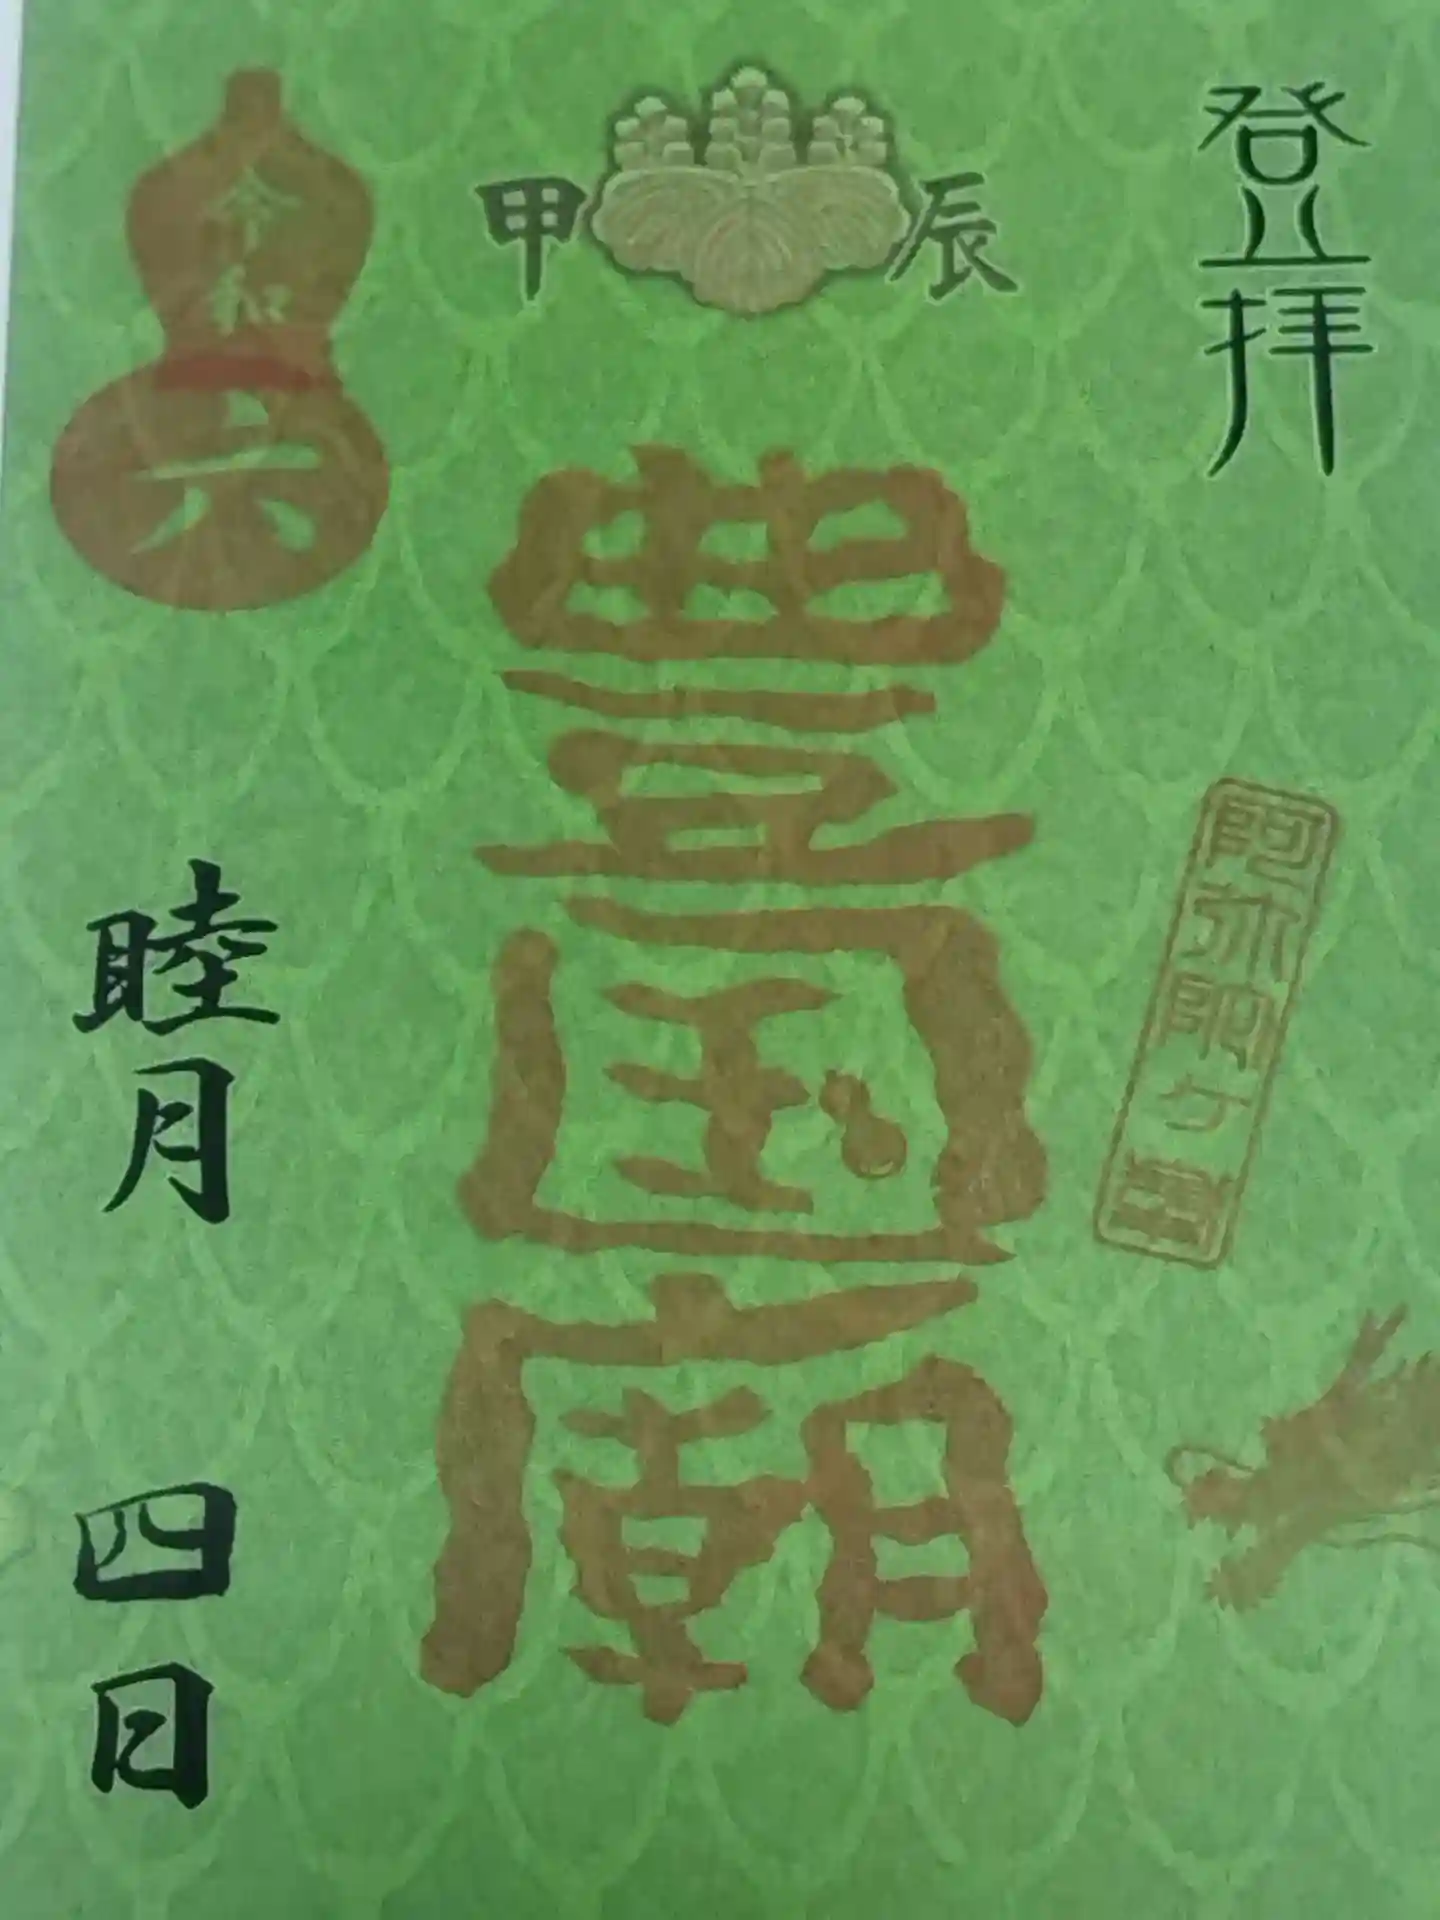 登拝
阿弥陀ヶ峯
甲辰
豊国廟
令和
六
睦月
四日